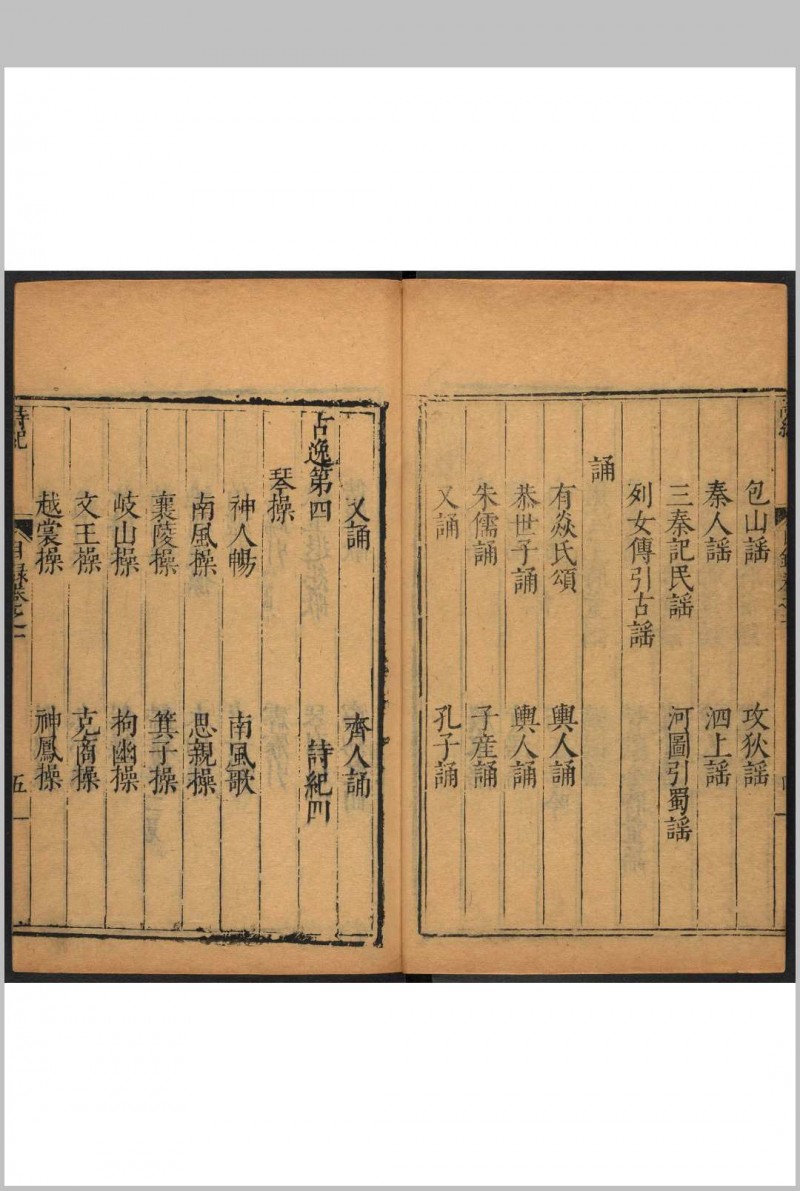 包山謡 攻狄謡
秦人謡 泗上謡
三秦記民謡 河圖引蜀謡
列女傳引古謡
誦
有焱氏頌 輿人誦
恭世子誦 輿人誦
朱儒誦 子産誦
又誦 孔子誦
又誦 齊人誦
古逸第四 詩紀四
琴操
神人暢 南風歌
南風操 思親操
襄陵操 箕子操
岐山操 拘幽操
文王操 克商操
越裳操 神鳳操
詩紀 目録卷之一 五